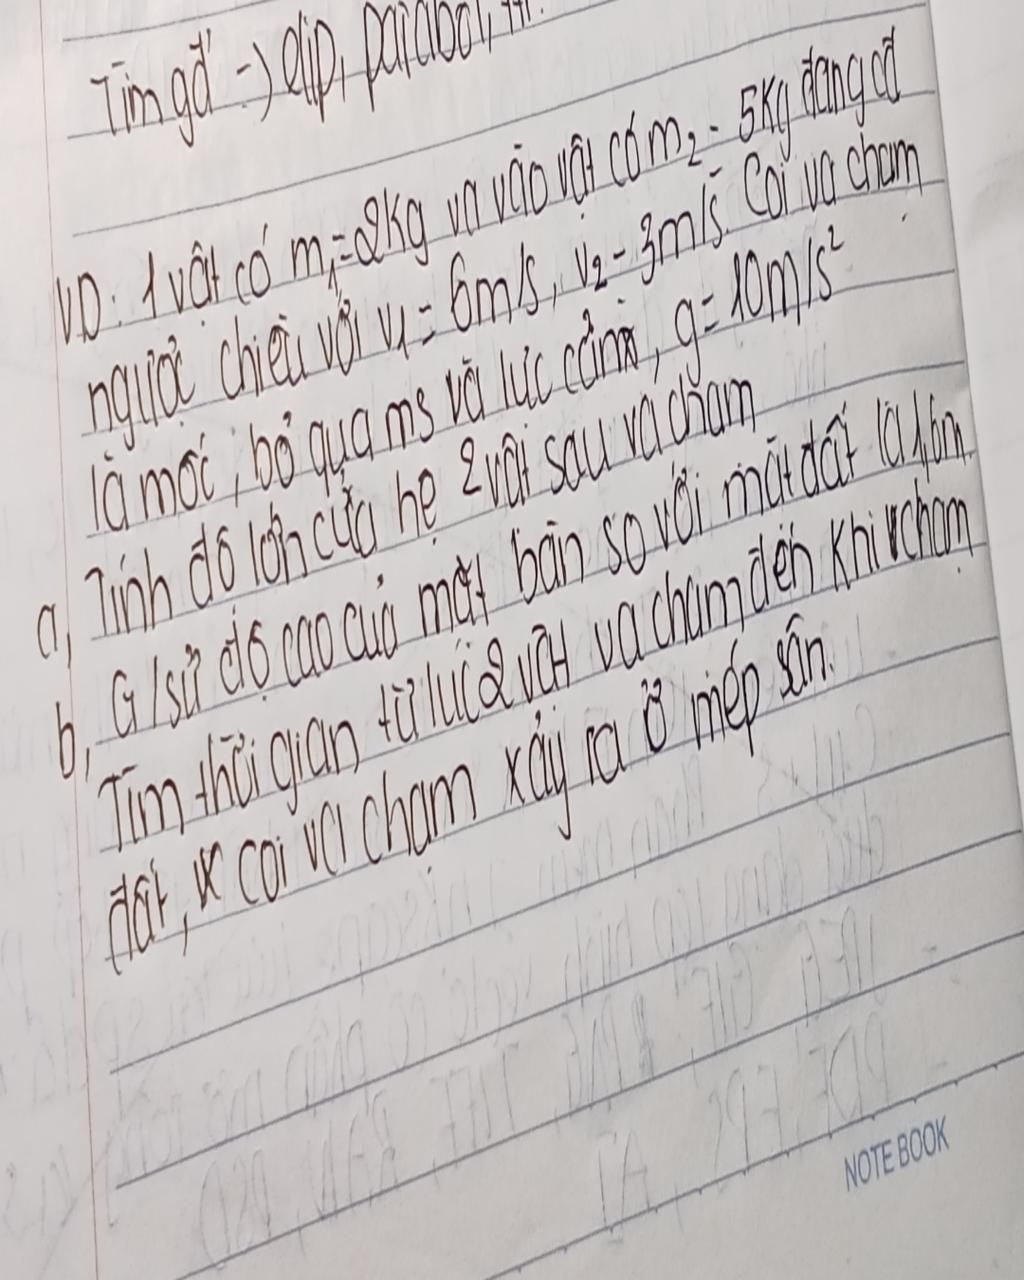 Tìm gđ -) elip, parabol,
VD: 1 vật có m₁=2kg va vào vật có m₂ = 5kg đang cđ
ngược chiều với v₁ = 6m/s, v₂ = 3m/s. Coi va chạm
là mới, bỏ qua ms và lực cản, g= 10m/s²
a, Tính độ lớn của hệ 2 vật sau va chạm
b, G/sử độ cao của mặt bàn so với mặt đất là
Tìm thời gian từ lúc 2 vật va chạm đến khi chạm
đất, coi va chạm xảy ra ở mép sân.
NOTE BOOK